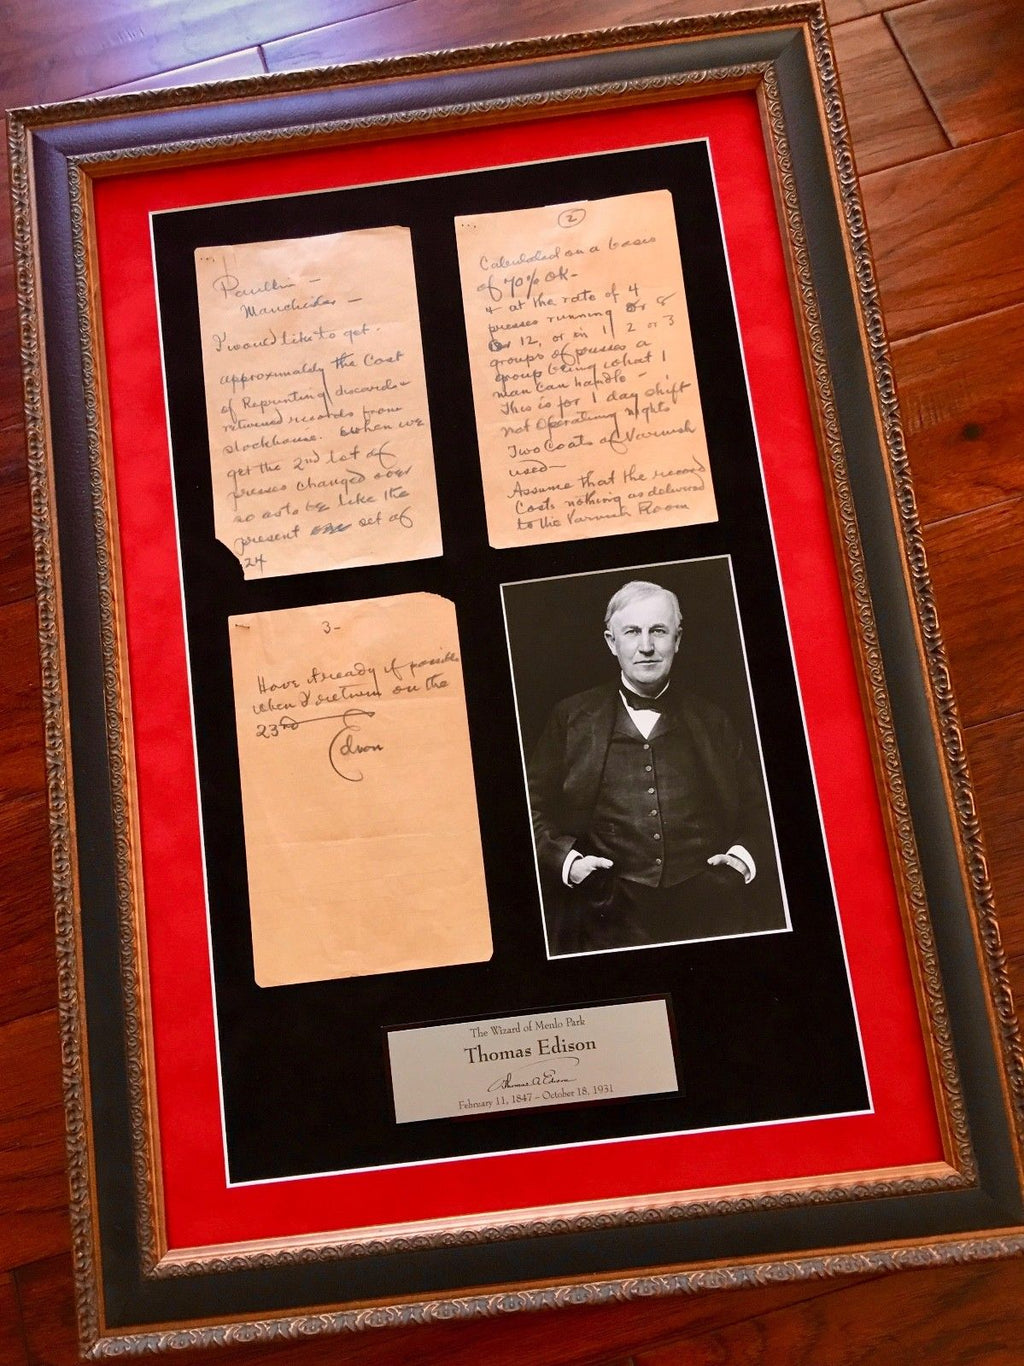 Paulkin –
Manchester –
I would like to get.
approximately the Cost
of Reprinting discards &
returned records from
stockhouse. when we
get the 2nd lot of
presses changed over
so as to be like the
present set of
24
2
Calculated on a basis
of 70% OK –
& at the rate of 4
presses running or 8
or 12, or in 1 2 or 3
groups of presses a
group being what 1
man can handle –
This is for 1 day shift
not operating nights
Two Coats of Varnish
used –
Assume that the record
Costs nothing as delivered
to the Varnish Room
3-
Have ready if possible
when I return on the
23rd
Edison
The Wizard of Menlo Park
Thomas Edison
Thomas A Edison
February 11, 1847 – October 18, 1931